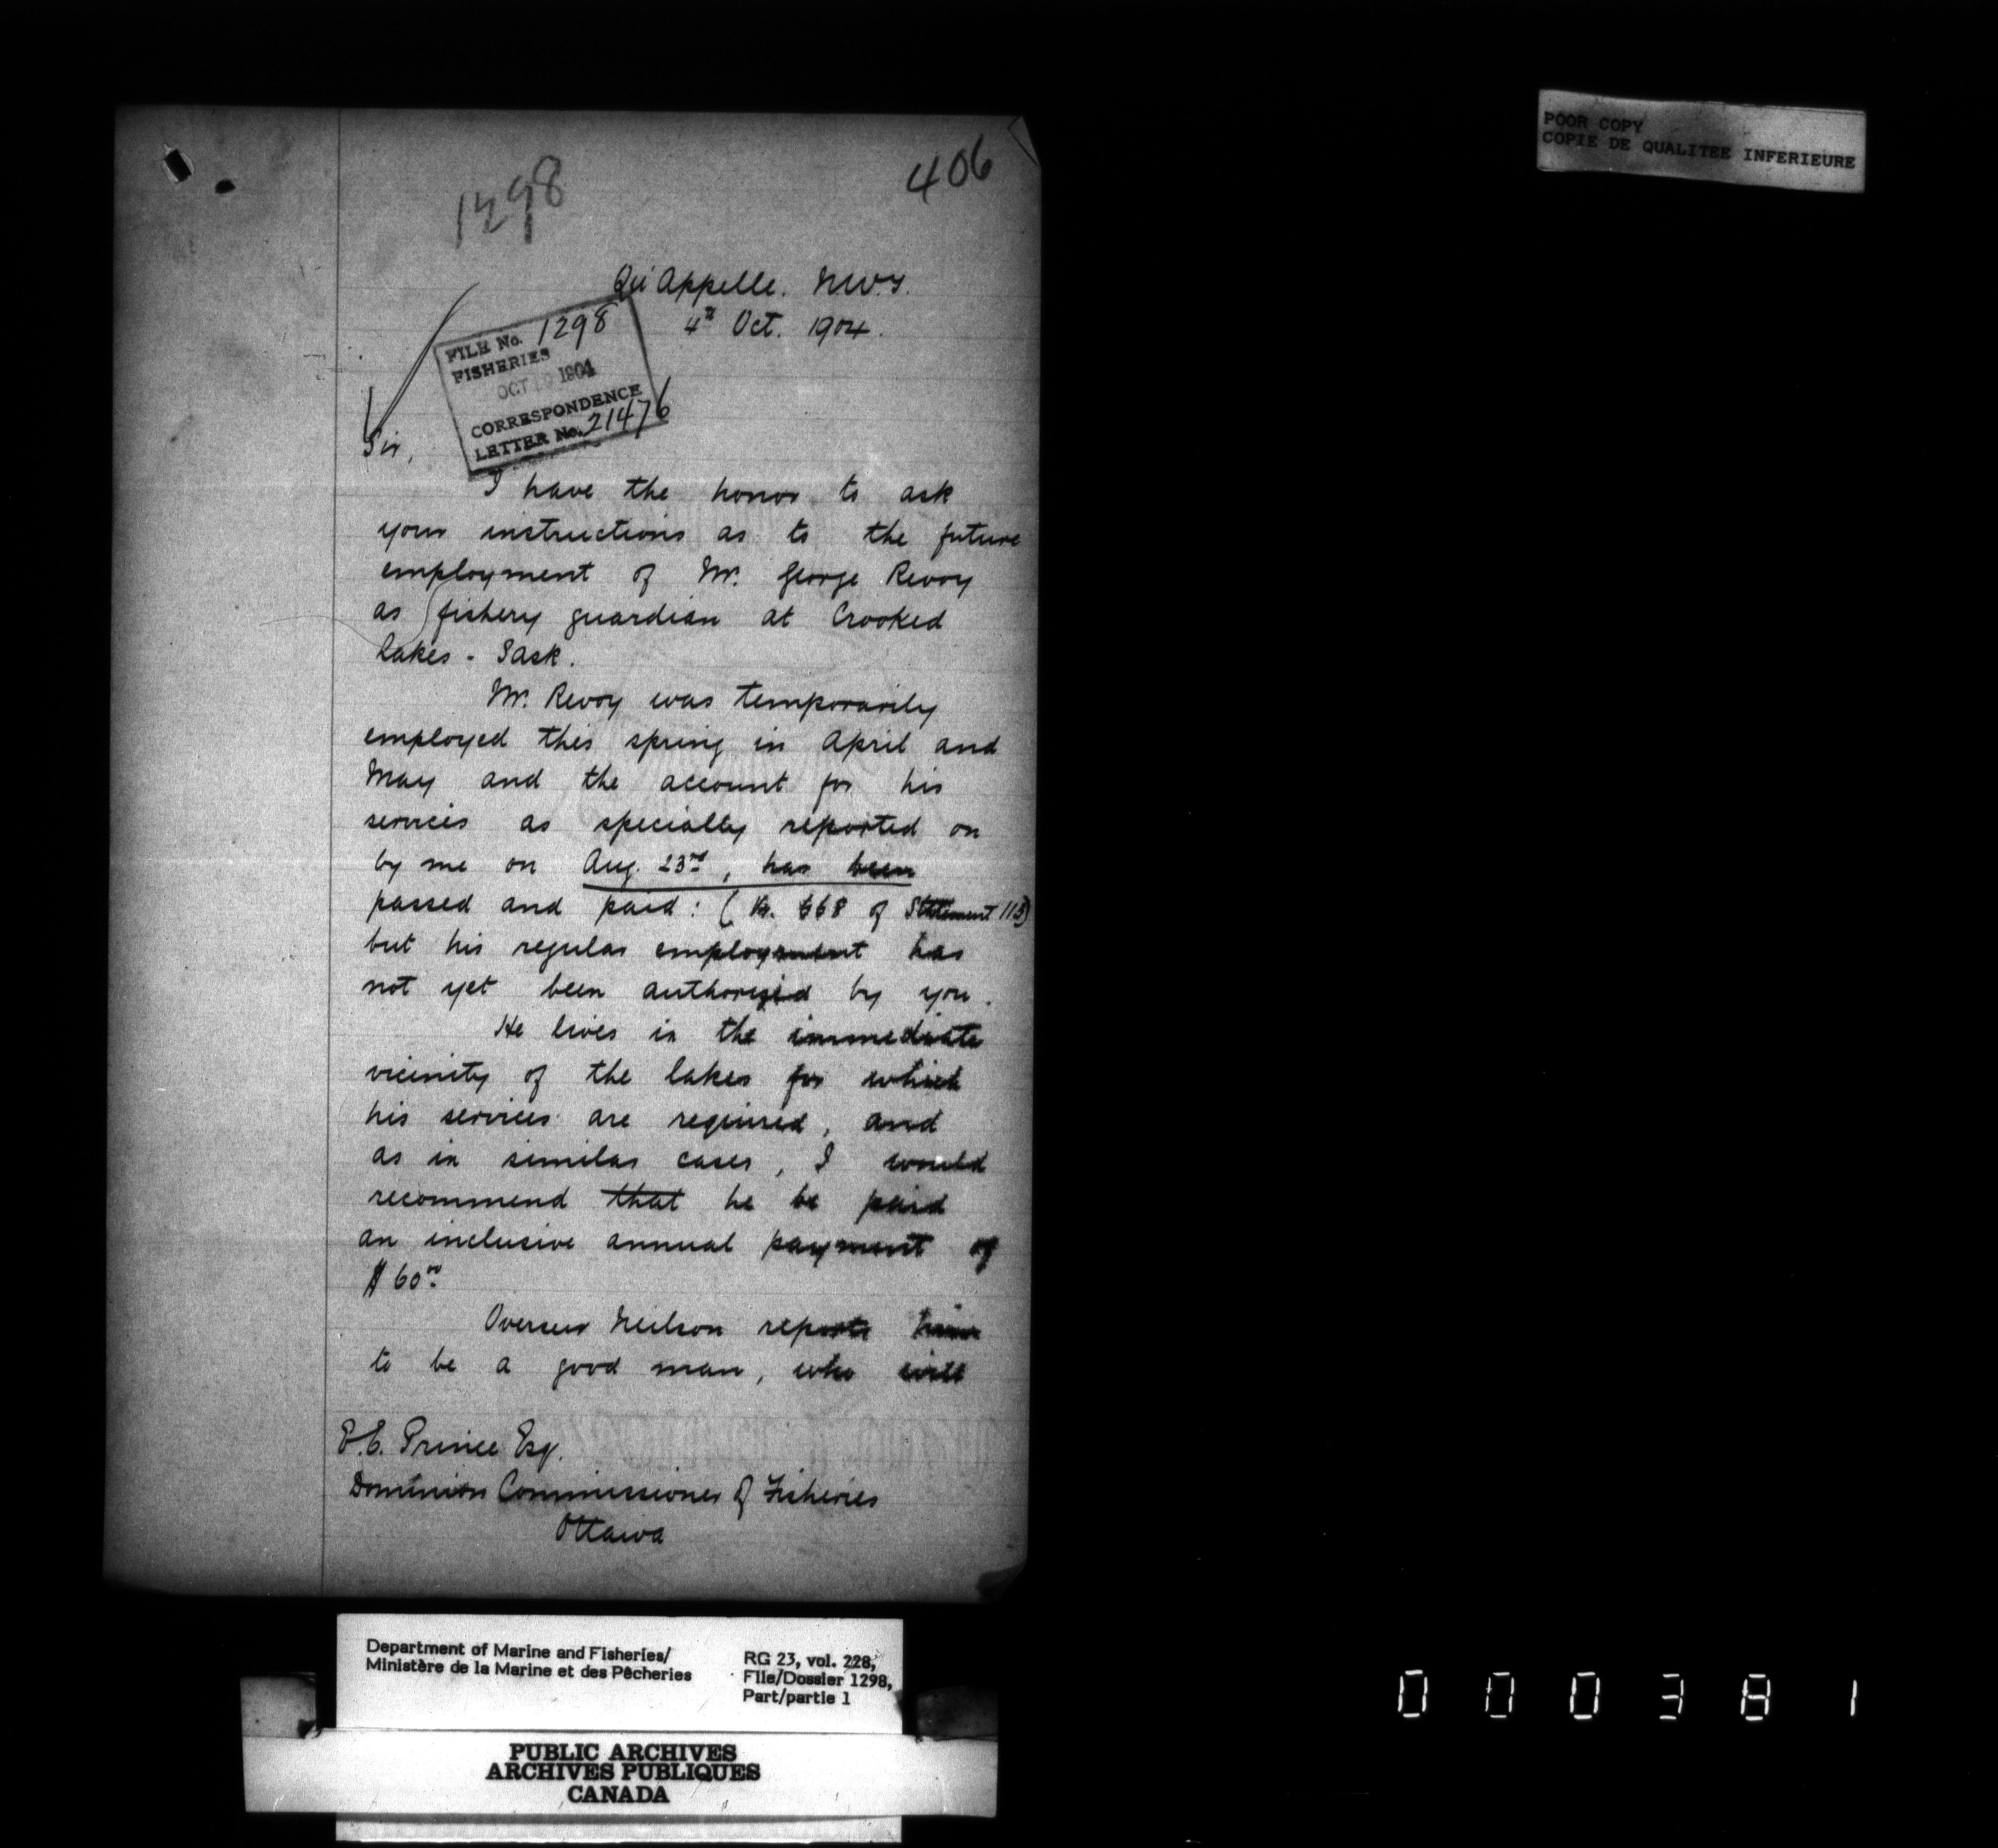 POOR COPY
COPIE DE QUALITEE INFERIEURE
406
1298
Qu'Appelle. N.W.T.
4th Oct. 1904.
FILE No. 1298
FISHERIES
OCT 10 1904
CORRESPONDENCE
LETTER No. 21476
Sir,
I have the honor to ask
your instructions as to the future
employment of Mr. George Revoy
as fishery guardian at Crooked
Lakes - Sask.
Mr. Revoy was temporarily
employed this spring in April and
May and the account for his
services as specially reported on
by me on Aug. 23rd, has been
passed and paid: ( 668 of Statement 113)
but his regular employment has
not yet been authorized by you.
He lives in the immediate
vicinity of the lakes for which
his services are required, and
as in similar cases, I would
recommend that he be paid
an inclusive annual payment of
$60.00
Overseer Neilson reports him
to be a good man, who will
E.E. Prince Esq.
Dominion Commissioner of Fisheries
Ottawa
Department of Marine and Fisheries/
Ministère de la Marine et des Pêcheries
RG 23, vol. 228,
File/Dossier 1298,
Part/partie 1
PUBLIC ARCHIVES
ARCHIVES PUBLIQUES
CANADA
000381